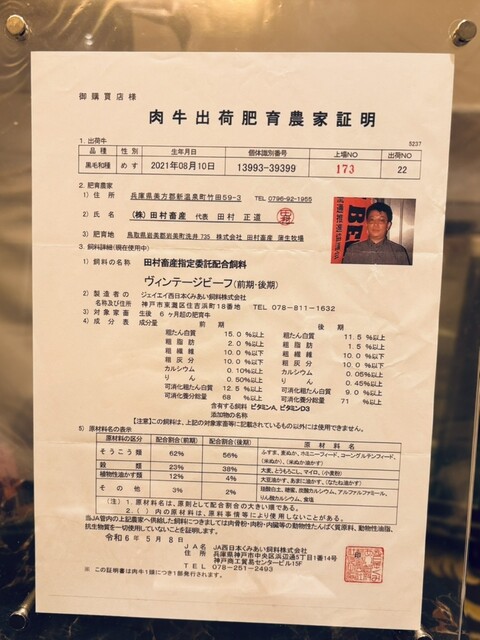 御購買店様
肉牛出荷肥育農家証明
5237
1. 出荷牛
品種 性別 生年月日 個体識別番号 上場NO 出荷NO
黒毛和種 めす 2021年08月10日 13993-39399 173 22
2. 肥育農家
1) 住所 兵庫県美方郡新温泉町竹田59-3 TEL 0796-92-1955
2) 氏名 (株) 田村畜産 代表 田村 正道
3) 肥育地 鳥取県岩美郡岩美町浅井735 株式会社 田村畜産 蒲生牧場
3. 飼料詳細(現在使用中)
1) 飼料の名称 田村畜産指定委託配合飼料
ヴィンテージビーフ(前期・後期)
2) 製造者の ジェイエイ西日本くみあい飼料株式会社
名称及び住所 神戸市東灘区住吉浜町18番地 TEL 078-811-1632
3) 対象家畜 生後 6ヶ月起の肥育牛
4) 成分表 成分量 前期 後期
粗たん白質 15.0 %以上 粗たん白質 11.5 %以上
粗脂肪 2.0 %以上 粗脂肪 1.5 %以上
粗繊維 10.0 %以下 粗繊維 10.0 %以下
粗灰分 10.0 %以下 粗灰分 10.0 %以下
カルシウム 0.10%以上 カルシウム 0.05%以上
りん 0.50%以上 りん 0.45%以上
可消化粗たん白質 12.5 %以上 可消化粗たん白質 9.0 %以上
可消化養分総量 68 %以上 可消化養分総量 71 %以上
含有する飼料 ビタミンA, ビタミンD3
添加物の名称
【注意】この飼料は、上記の対象家畜等に記載されているもの以外には使用できません。
5) 原材料名の表示
原材料の区分 配合割合(前期) 配合割合(後期) 原材料名
そうこう類 62% 56% ふすま, 麦ぬか, ホミニーフィード, コーングルテンフィード,
(米ぬか), (米ぬか油かす)
穀類 23% 38% 大麦, とうもろこし, マイロ, (小麦粉)
植物性油かす類 12% 4% 大豆油かす, あまに油かす, (なたね油かす)
その他 3% 2% 糖蜜, 炭酸カルシウム, アルファルファミール,
りん酸カルシウム, 食塩
(注) 1. 原材料名は, 原則として配合割合の大きい順である。
2. ( ) 内の原材料は, 原料事情等により使用しないことがある。
当JA管内の上記農家へ供給した飼料につきましては肉骨粉・肉粉・内臓等の動物性たんぱく質原料、動物性油脂、
抗生物質を一切使用していないことを証明します。
令和6年5月8日
JA名 JA西日本くみあい飼料株式会社
住所 兵庫県神戸市中央区浜辺通5丁目1番14号
神戸商工貿易センタービル15F
TEL 078-251-2493
※ この証明書は肉牛1頭につき1部発行されます。